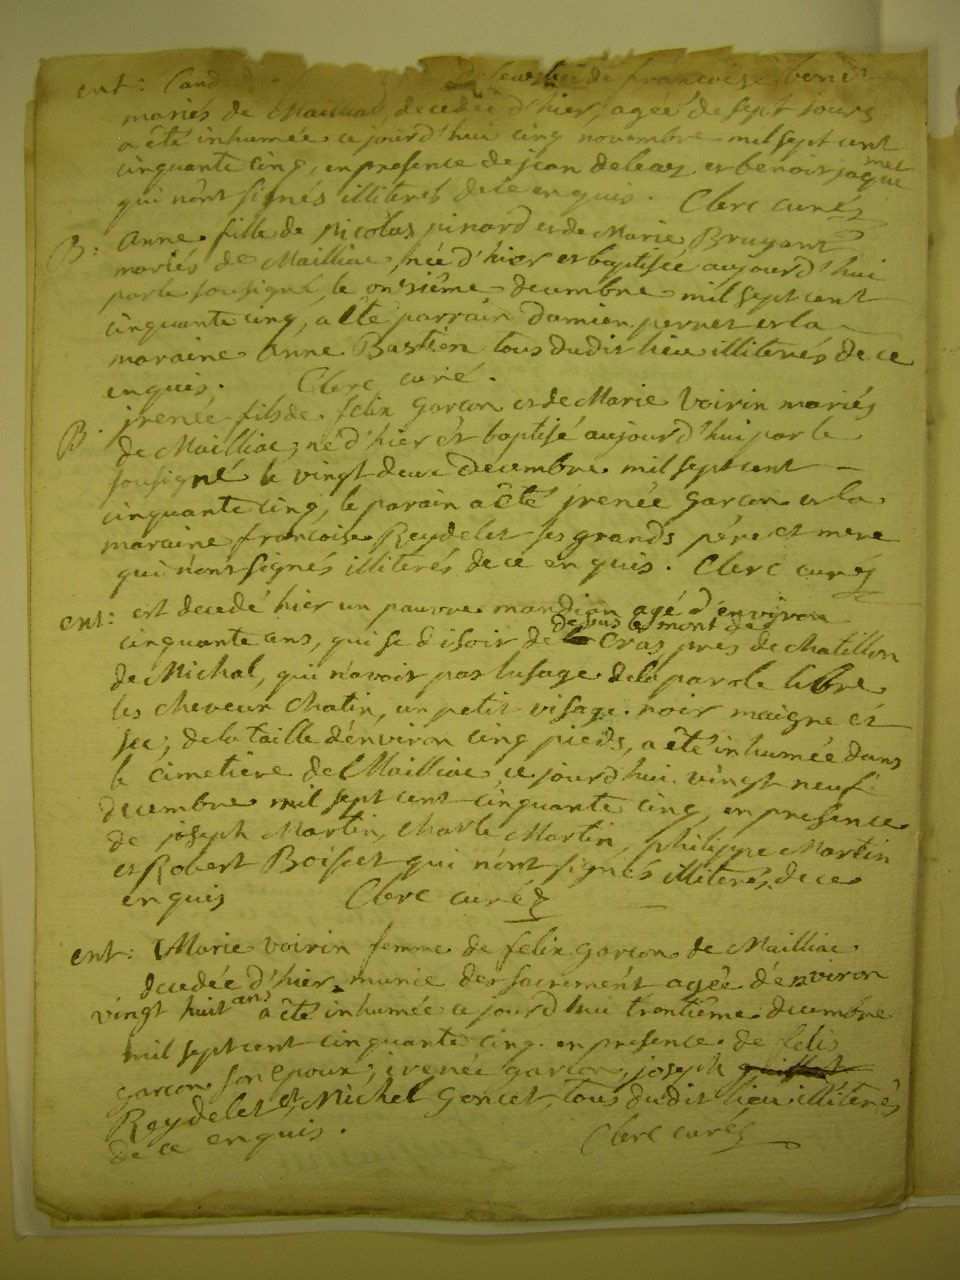 ent: de francoise
mariés de Mailliac, decedée d'hier, agée de sept jours
a été inhumée ce jourd'hui cinq novembre mil sept cent
cinquante cinq, en presence de jean et benoit
qui n'ont signés illiterés de ce enquis. Clerc curé
B: Anne fille de Nicolas pinard et de Marie Bruyant
mariés de Mailliac, née d'hier et baptisée aujourd'hui
par le sousigné, le onzième decembre mil sept cent
cinquante cinq, a été parrain Damien pernet et la
maraine Anne Bastien tous dudit lieu illiterés de ce
enquis. Clerc curé.
B. jrenée fils de felix garçon et de Marie Voirin mariés
de Mailliac, né d'hier et baptisé aujourd'hui par le
sousigné le vingt deux decembre mil sept cent
cinquante cinq, le parain a été jrenée garçon et la
maraine francoise Reydelet ses grands père et mere
qui n'ont signés illiterés de ce enquis. Clerc curé
ent: est decedé hier un pauvre mandian agé d'environ
dessus le mont de
cinquante ans, qui se disoit de Cras pres de Chatillon
de Michal, qui n'avoit pas lusage de la parole libre
les cheveux chatin, un petit visage noir maigre et
sec; de la taille d'environ cinq pieds, a été inhumée dans
le cimetière de Mailliac, ce jourd'hui vingt neuf
decembre mil sept cent cinquante cinq, en presence
de joseph Martin, Charle Martin, philippe Martin
et Robert Boisset qui n'ont signés illiterés, de ce
enquis Clerc curé
ent: Marie voirin femme de felix garçon de Mailliac
decedée d'hier munie des sacrement agée d'environ
vingt huit ans a été inhumée ce jourd'hui trentième decembre
mil sept cent cinquante cinq. en presence de felix
garçon son epoux, irenée garçon, joseph
Reydelet et Michel Goncet, tous dudit lieu illiterés
de ce enquis. Clerc curé